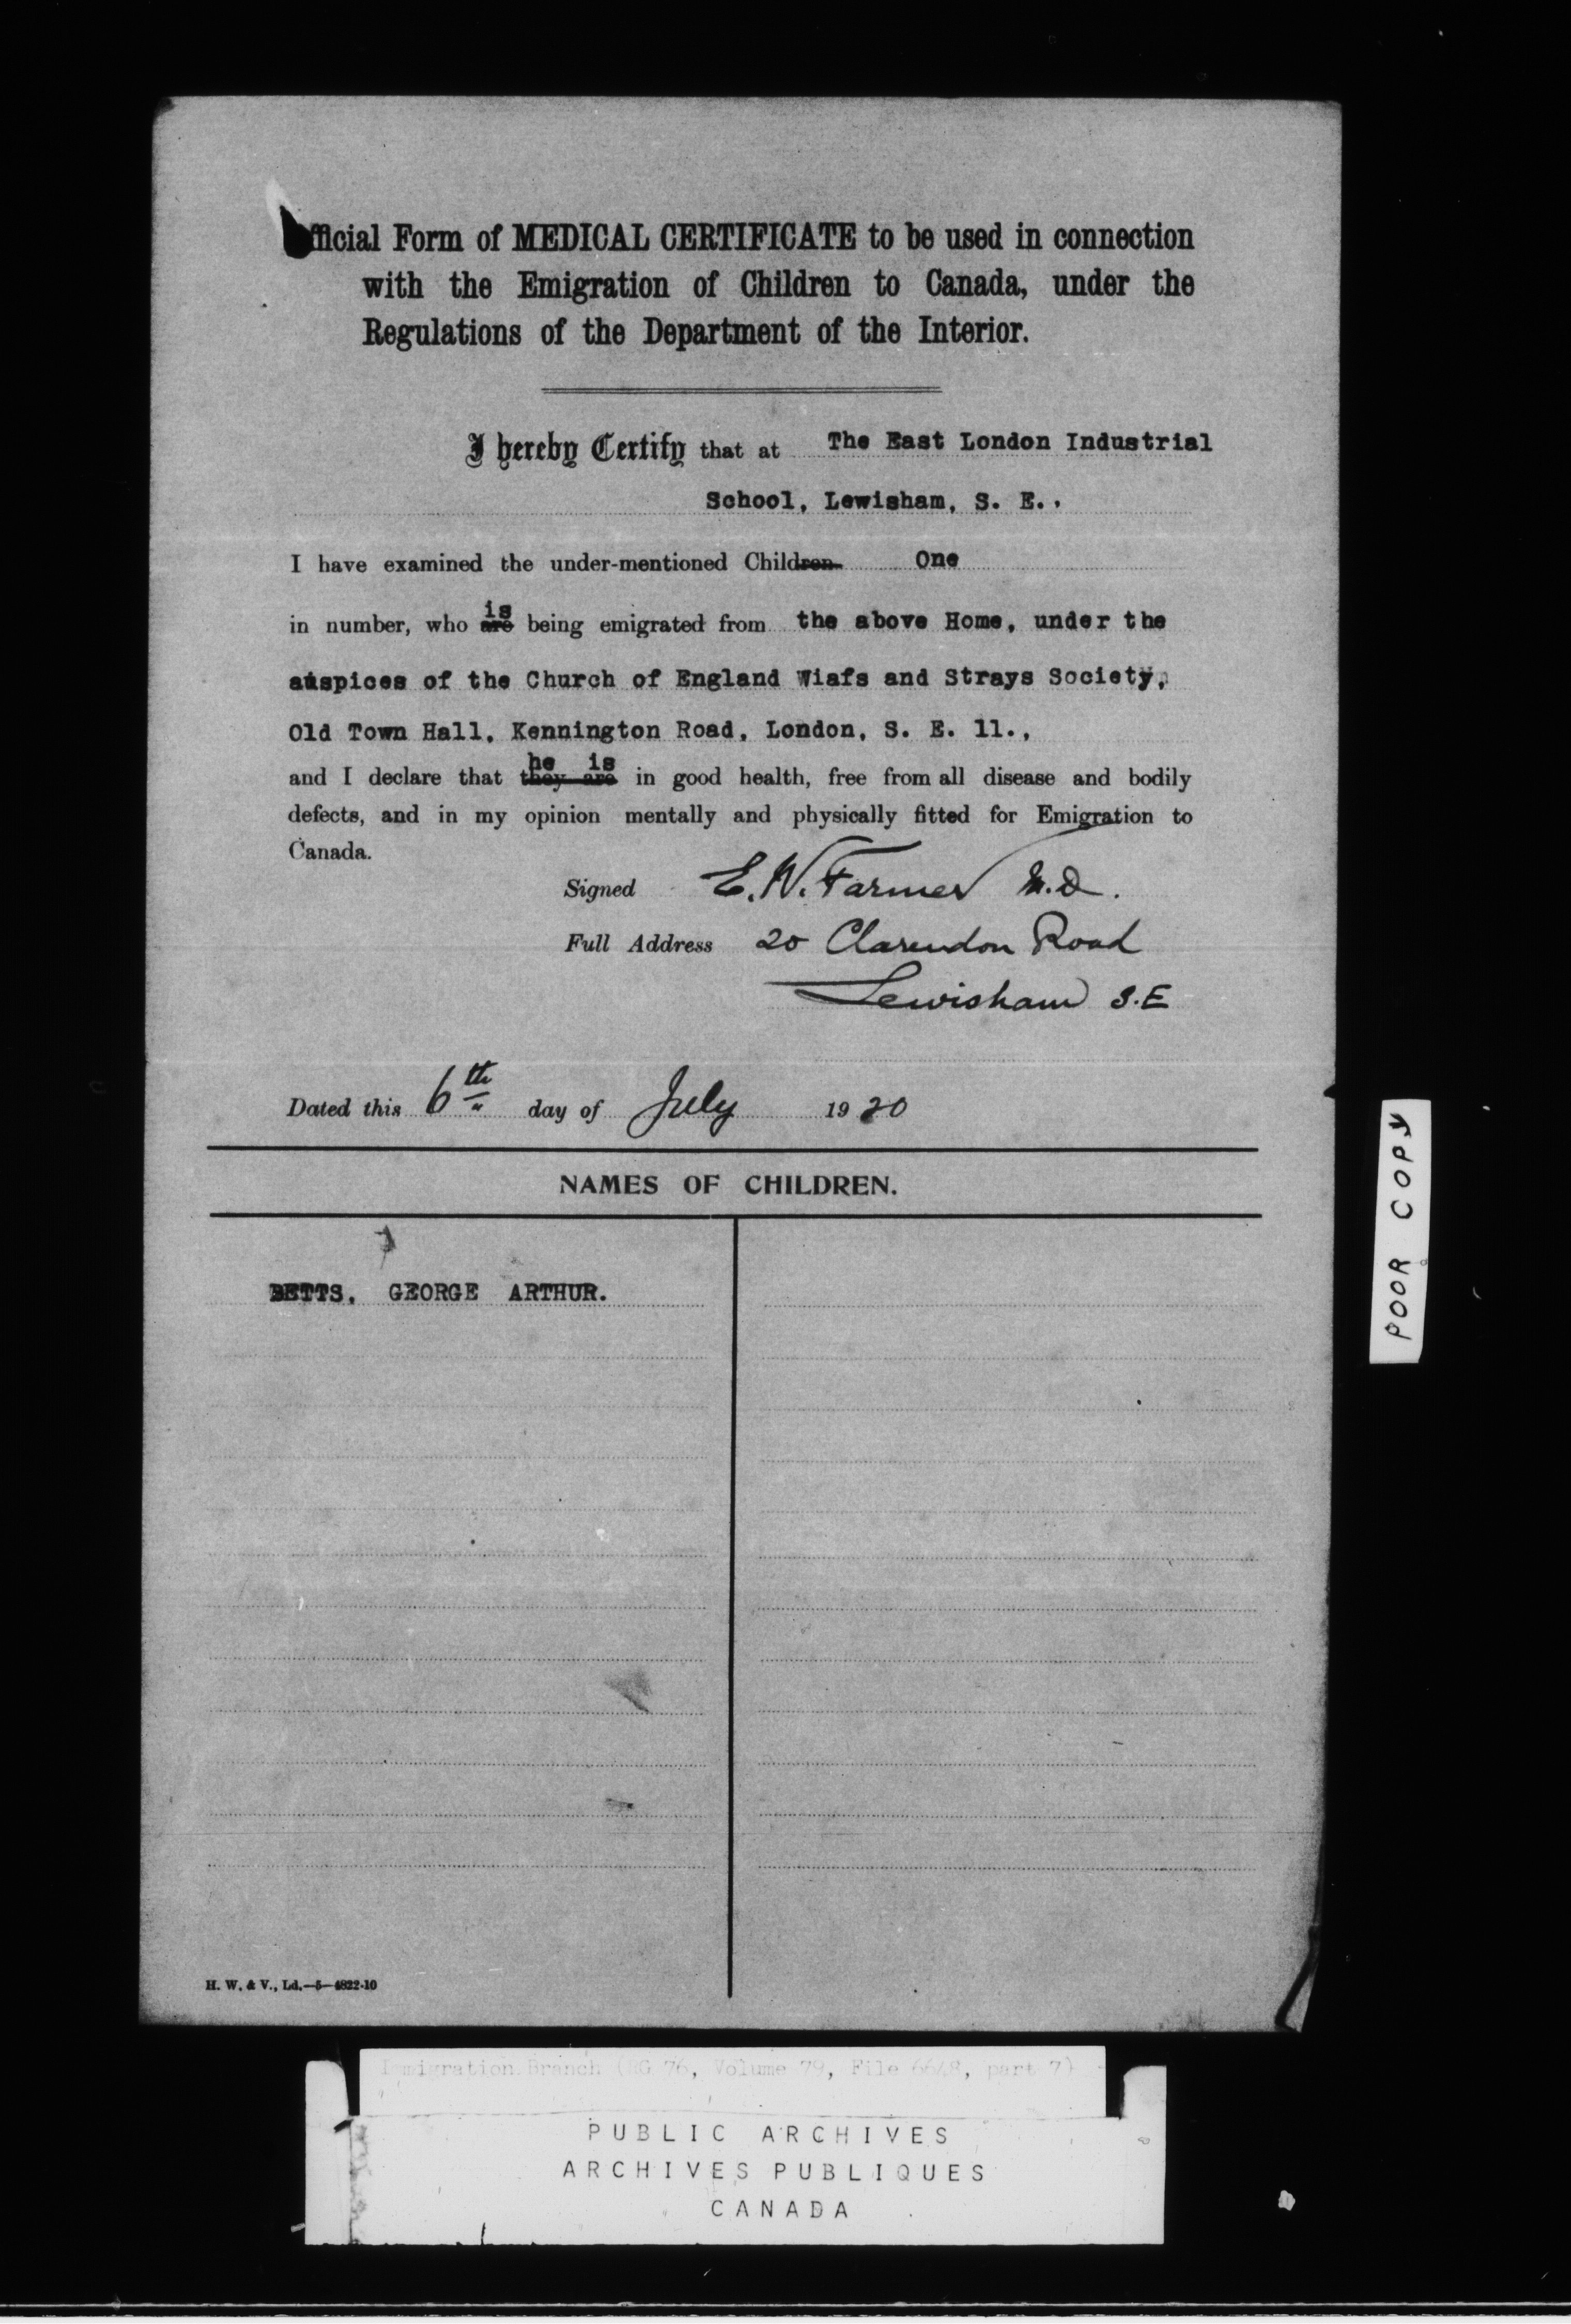 Official Form of MEDICAL CERTIFICATE to be used in connection
with the Emigration of Children to Canada, under the
Regulations of the Department of the Interior.
I hereby Certify that at The East London Industrial
School, Lewisham, S. E.,
I have examined the under-mentioned Children One
is
in number, who are being emigrated from the above Home, under the
auspices of the Church of England Wiafs and Strays Society,
Old Town Hall, Kennington Road, London, S. E. 11.,
he is
and I declare that they are in good health, free from all disease and bodily
defects, and in my opinion mentally and physically fitted for Emigration to
Canada.
Signed E. W. Farmer M.D.
Full Address 20 Clarendon Road
Lewisham S.E
Dated this 6th day of July 1920
NAMES OF CHILDREN.
BETTS, GEORGE ARTHUR.
H. W. & V., Ld.—5—4822-10
POOR COPY
Immigration Branch (RG 76, Volume 79, File 6648, part 7)
PUBLIC ARCHIVES
ARCHIVES PUBLIQUES
CANADA